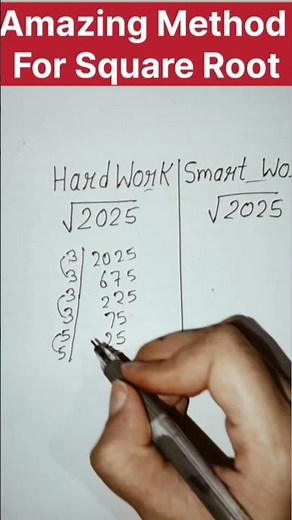 Amazing Method
For Square Root
Hard Work Smart_Wo
√2025 √2025
3 2025
3 675
3 225
3 75
5 25
5